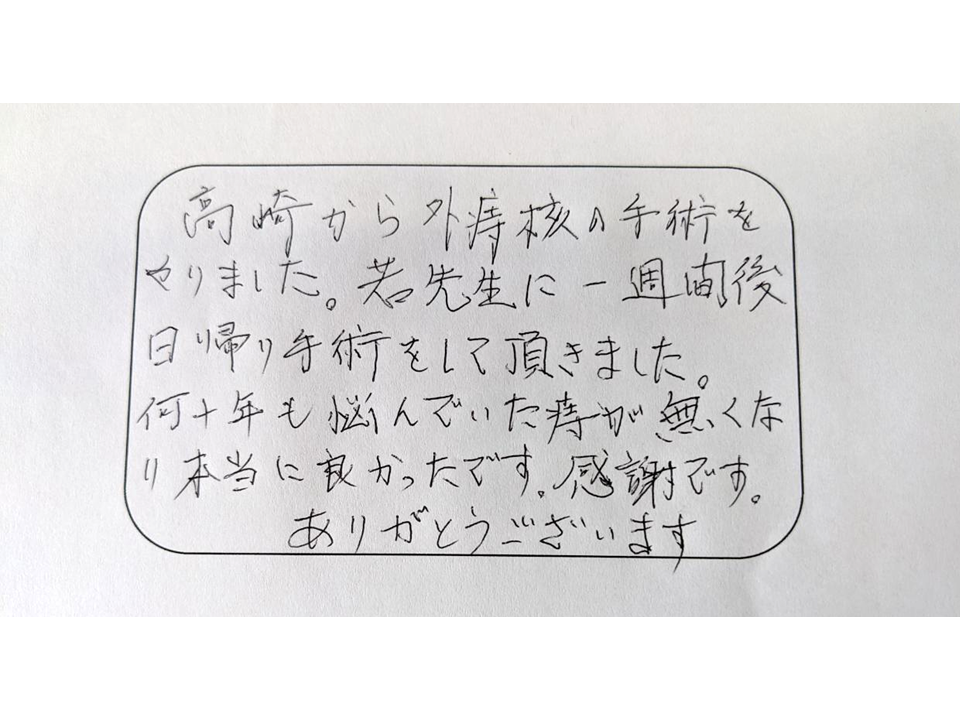 高崎から外痔核の手術を
やりました。若先生に一週間後
日帰り手術をして頂きました。
何十年も悩んでいた痔が無くな
り本当に良かったです。感謝です。
ありがとうございます